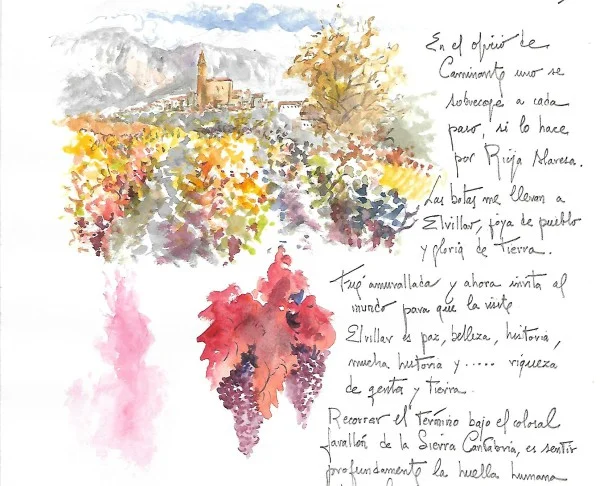 En el oficio de
Caminante uno se
sobrecoge a cada
paso, si lo hace
por Rioja Alavesa.
Las botas me llevan a
Elvillar, joya de pueblo
y gloria de Tierra.
Fué amurallada y ahora invita al
mundo para que la visite
Elvillar es paz, belleza, historia,
mucha historia y ..... riqueza
de gente y tierra.
Recorrer el Término bajo el colosal
farallón de la Sierra Cantabria, es sentir
profundamente la huella humana